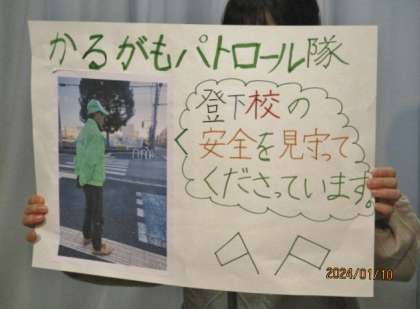 かるがもパトロール隊
登下校の
安全を見守って
くださっています。
2024/01/10